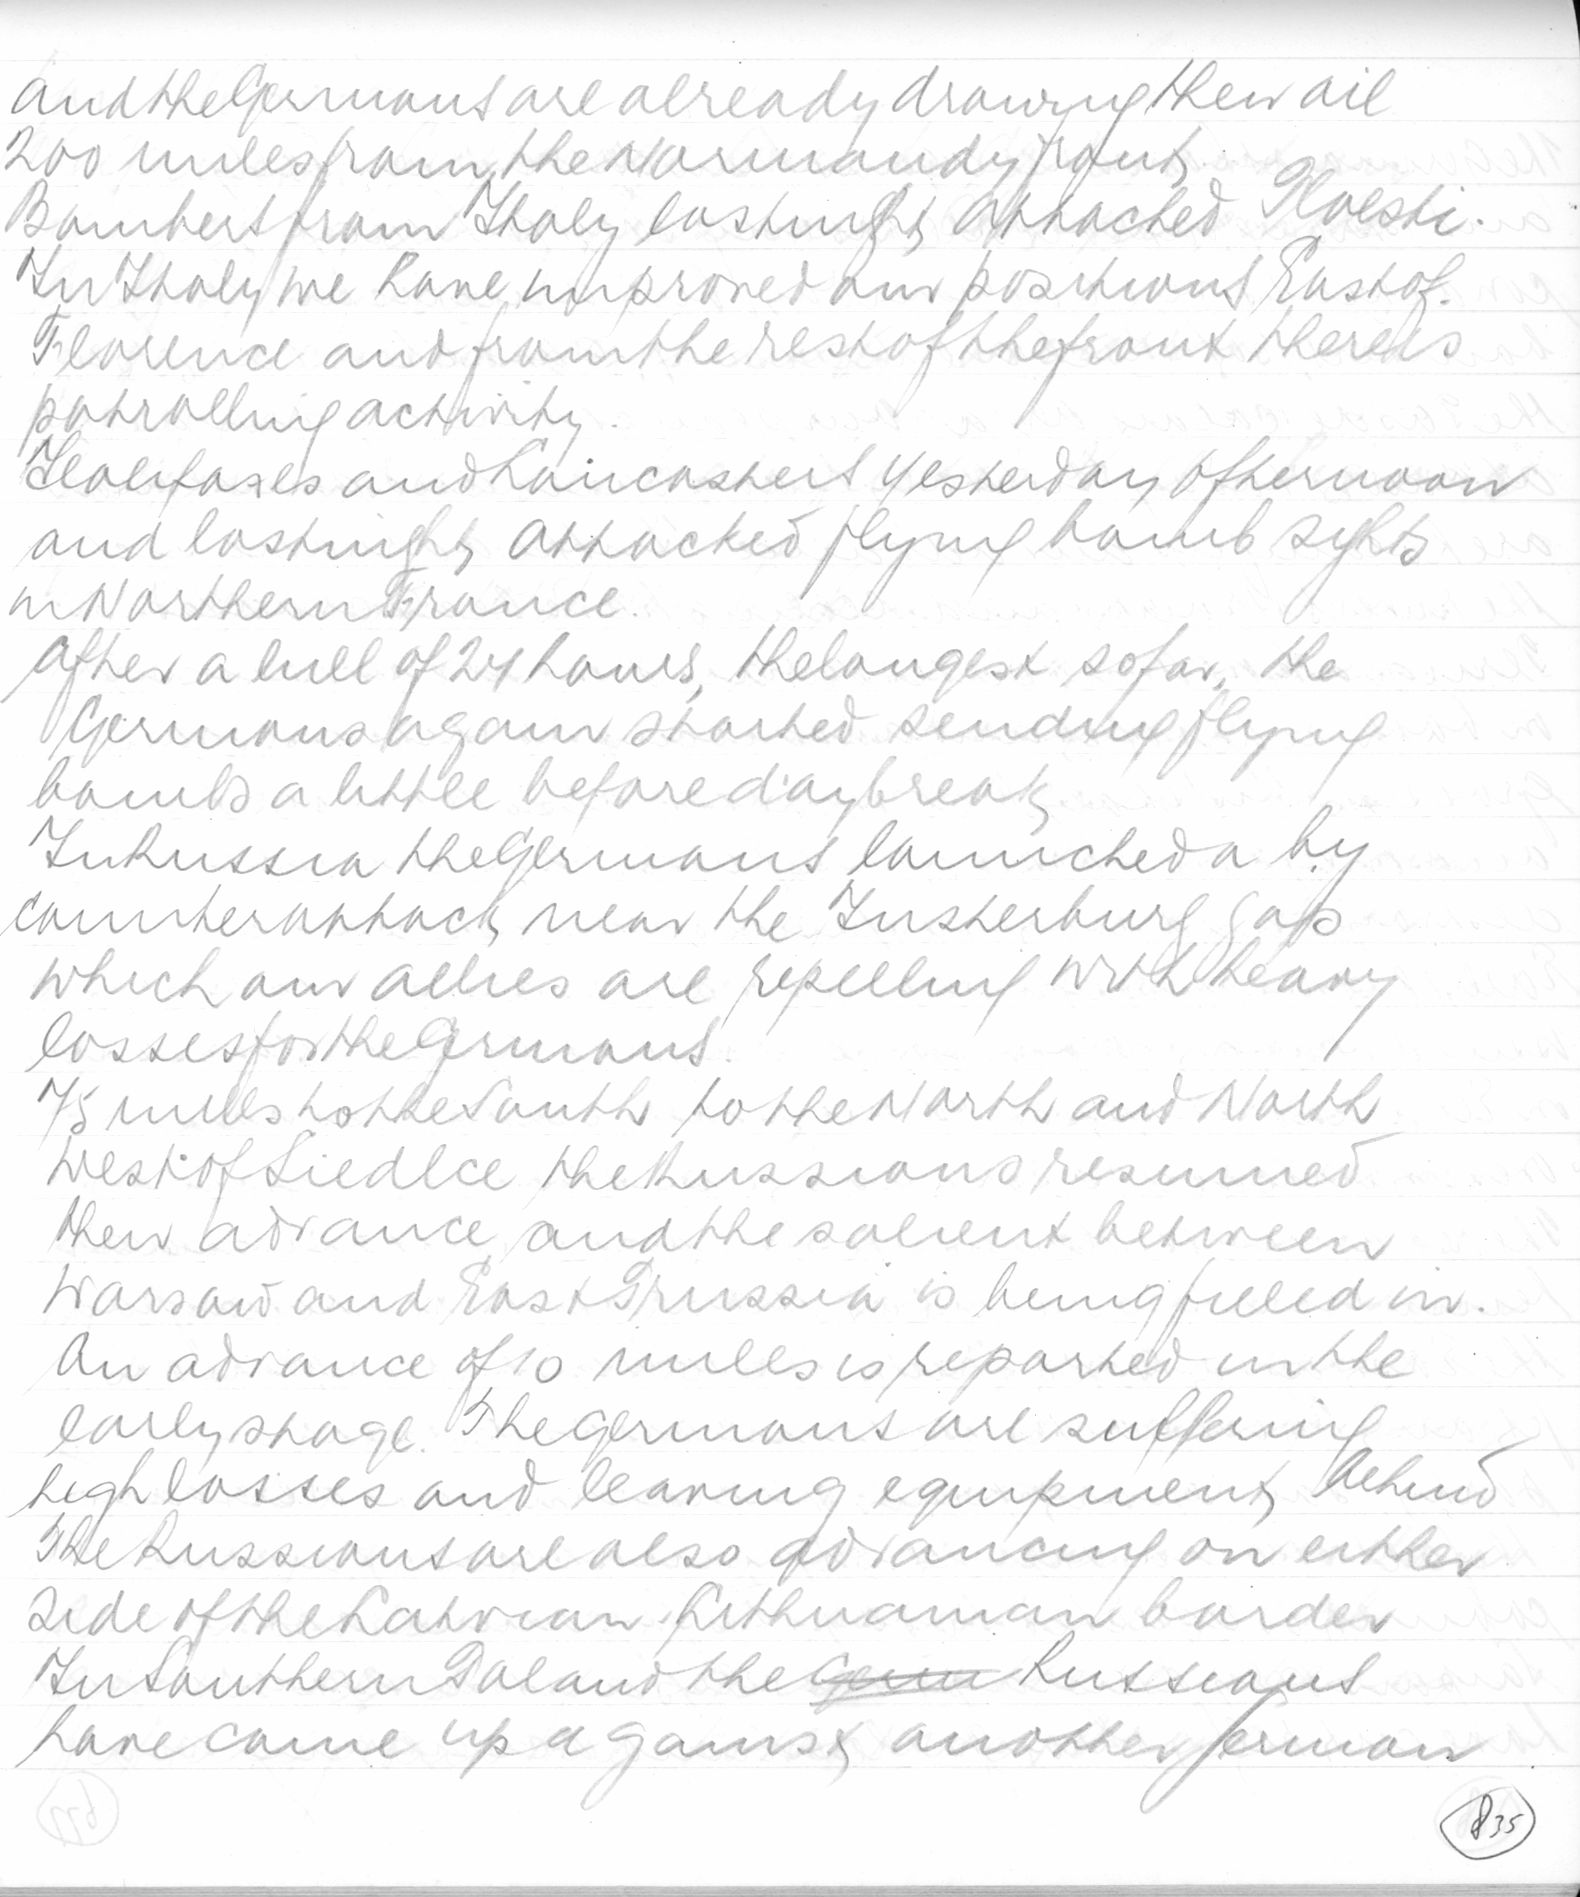 and the Germans are already drawing their oil
200 miles from the Normandy front,
Bombers from Italy last night attacked Ploesti.
In Italy we have improved our positions East of
Florence and from the rest of the front there is
patrolling activity.
Halifaxes and Lancasters yesterday afternoon
and last night attacked flying bomb sights
in Northern France.
After a lull of 24 hours, the longest so far, the
Germans again started sending flying
bombs a little before daybreak,
In Russia the Germans launched a big
counterattack near the Insterburg gap
which our allies are repelling with heavy
losses for the Germans.
75 miles to the South to the North and North
West of Siedlce the Russians resumed
their advance and the salient between
Warsaw and East Prussia is being filled in.
An advance of 10 miles is reported in the
early stage. The Germans are suffering
high losses and leaving equipment behind
The Russians are also advancing on either
side of the Latvian Lithuanian border
In Southern Poland the Germ Russians
have come up against another German
835